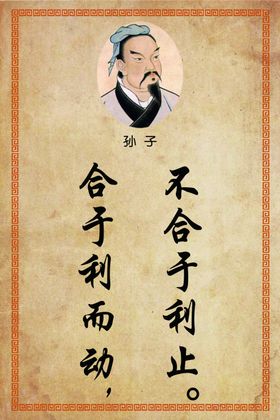 孙子
合于利而动，
不合于利止。